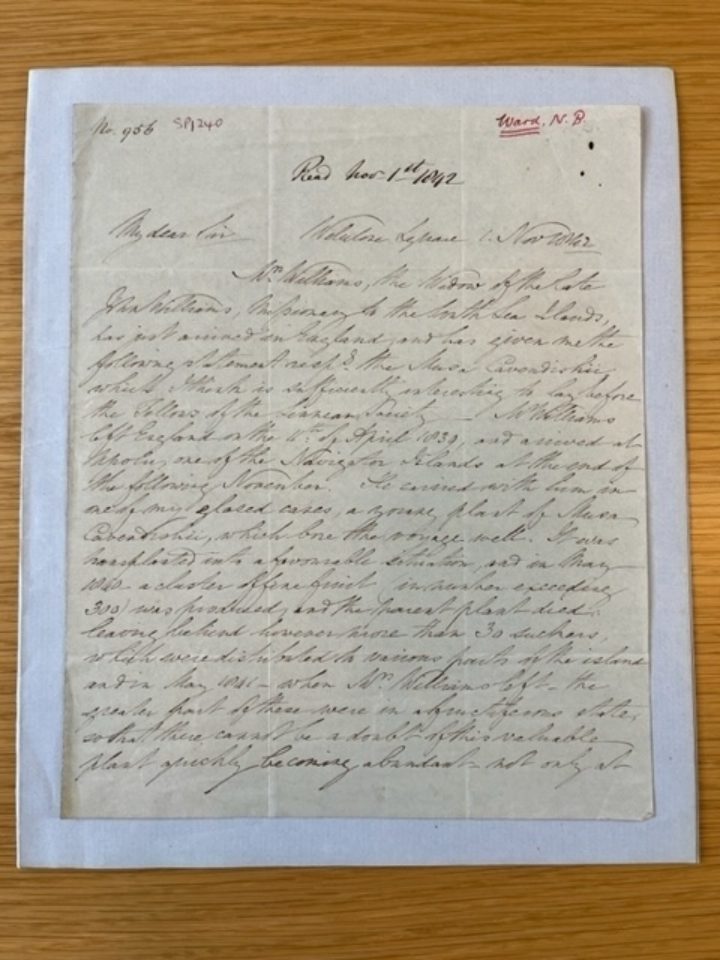 No. 956 SP1240 Ward, N. B.
Read Nov 1st 1842
My dear Sir Wellclose Square 1. Nov 1842
Mrs. Williams, the Widow of the late
John Williams, Missionary to the South Sea Islands,
has just arrived in England, and has given me the
following statement respg. the Musa Cavendishii
which I think is sufficiently interesting to lay before
the Fellows of the Linnean Society — Mr Williams
left England on the 11th of April 1839, and arrived at
Upolu, one of the Navigator Islands at the end of
the following November. He carried with him in
one of my closed cases, a young plant of Musa
Cavendishii, which bore the voyage well. It was
transplanted into a favourable situation, and in May
1840 a cluster of fine fruit (in number exceeding
300) was produced, and the parent plant died,
leaving behind however more than 30 suckers,
which were distributed to various parts of the island
and in May 1841 – when Mrs. Williams left – the
greater part of these were in a fructiferous state,
so that there cannot be a doubt of this valuable
plant quickly becoming abundant – not only at